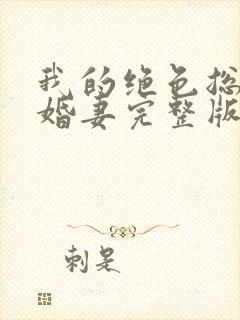 我的绝色总
婚妻完整版
刺是